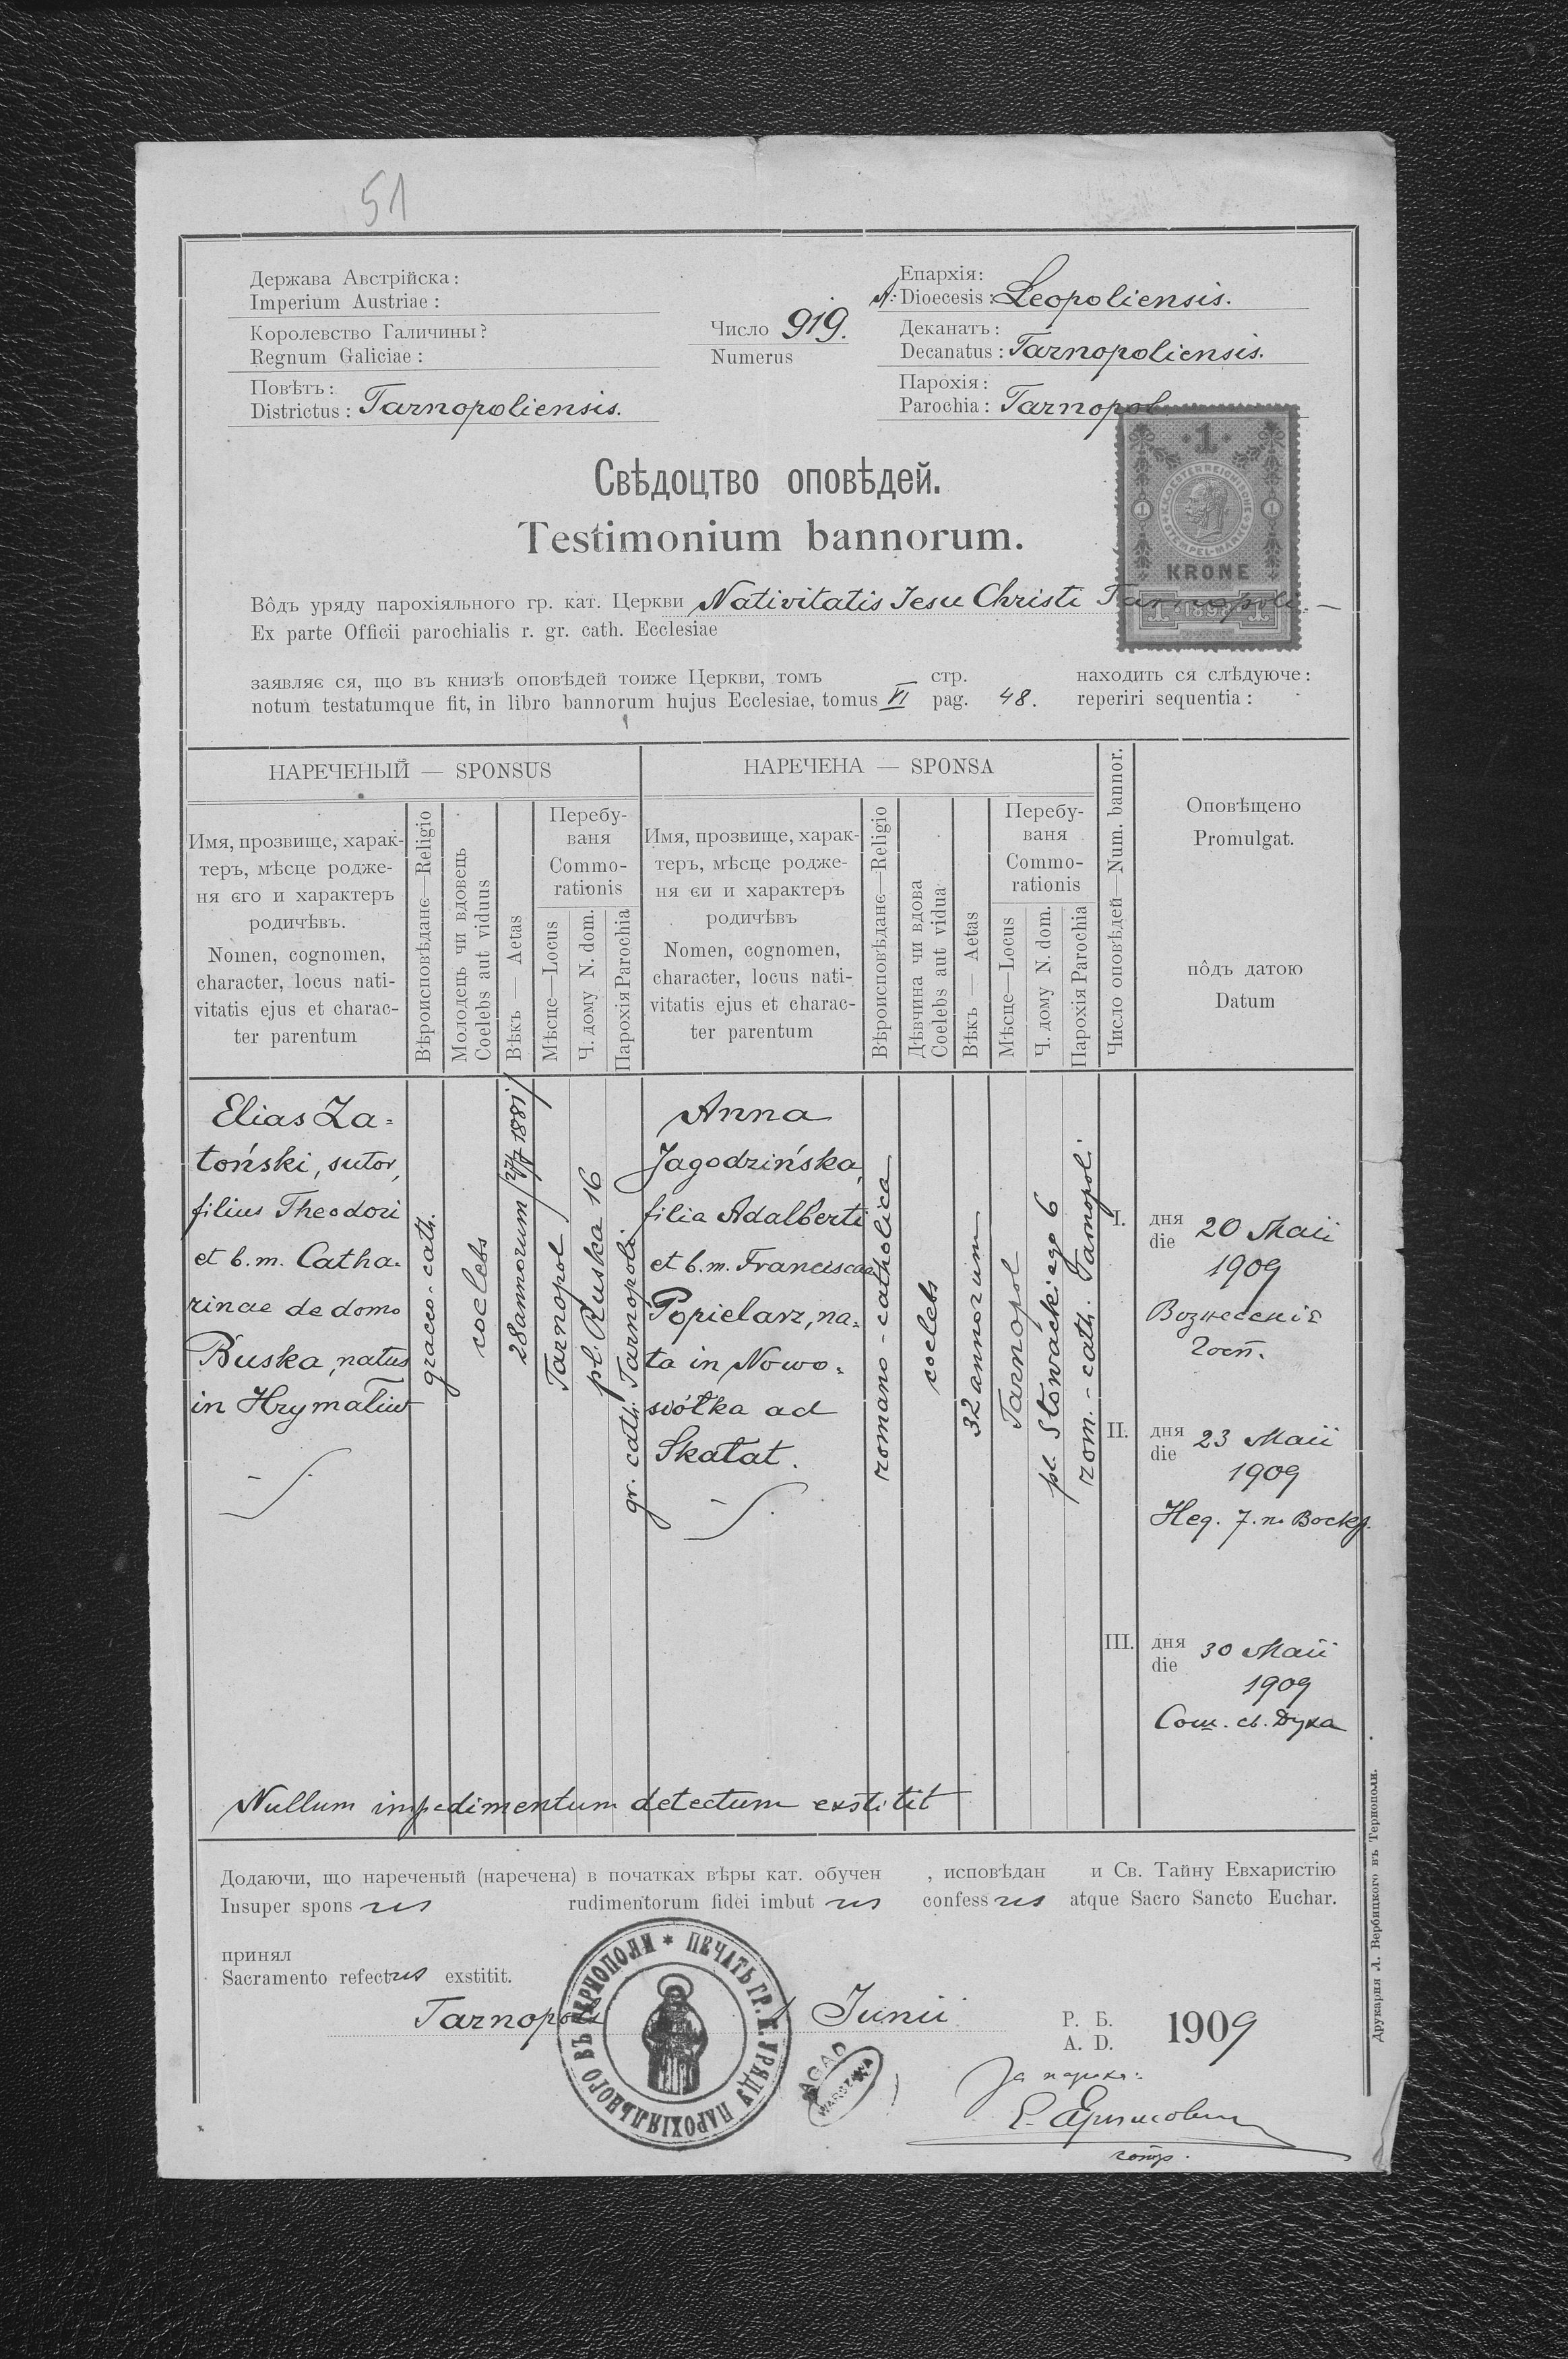 51
Держава Австрійска:
Imperium Austriae:
Королевство Галичины?
Regnum Galiciae:
Повѣтъ:
Districtus: Tarnopoliensis.
Число 919.
Numerus
Епархія:
A: Dioecesis: Leopoliensis.
Деканатъ:
Decanatus: Tarnopoliensis.
Парохія:
Parochia: Tarnopol
1
K.K. OESTERREICHISCHE STEMPEL-MARKE
1 1
KRONE
1 1898 1
Свѣдоцтво оповѣдей.
Testimonium bannorum.
Вôдъ уряду парохіяльного гр. кат. Церкви Nativitatis Jesu Christi Tarnopoli.
Ex parte Officii parochialis r. gr. cath. Ecclesiae
заявляє ся, що въ книзѣ оповѣдей тоиже Церкви, томъ стр. находить ся слѣдуюче:
notum testatumque fit, in libro bannorum hujus Ecclesiae, tomus VI pag. 48. reperiri sequentia:
НАРЕЧЕНЫЙ — SPONSUS
Имя, прозвище, харак-
теръ, мѣсце родже-
ня єго и характеръ
родичѣвъ.
Nomen, cognomen,
character, locus nati-
vitatis ejus et charac-
ter parentum
Вѣроисповѣданє—Religio
Молодець чи вдовець
Coelebs aut viduus
Вѣкъ — Aetas
Перебу-
ваня
Commo-
rationis
Мѣсце—Locus
Ч. дому N. dom.
Парохія Parochia
НАРЕЧЕНА — SPONSA
Имя, прозвище, харак-
теръ, мѣсце родже-
ня єи и характеръ
родичѣвъ
Nomen, cognomen,
character, locus nati-
vitatis ejus et charac-
ter parentum
Вѣроисповѣданє—Religio
Дѣвчина чи вдова
Coelebs aut vidua
Вѣкъ — Aetas
Перебу-
ваня
Commo-
rationis
Мѣсце—Locus
Ч. дому N. dom.
Парохія Parochia
Число оповѣдей—Num. bannor.
Оповѣщено
Promulgat.
пôдъ датою
Datum
Elias Za=
toński, sutor,
filius Theodori
et b.m. Catha=
rinae de domo
Buska, natus
in Hrymaliw
graeco-cath.
coelebs
28 annorum /27/7 1881/
Tarnopol
pl. Ruska 16
gr. cath. Tarnopoli
Anna
Jagodzińska,
filia Adalberti
et b.m. Franciscae
Popielarz, na=
ta in Nowo=
siółka ad
Skałat.
romano-catholica
coelebs
32 annorum
Tarnopol
pl. Słowackiego 6
rom.-cath. Tarnopol.
I. дня
die 20 Maii
1909
Вознесеніє
Госп.
II. дня
die 23 Maii
1909
Нед. 7. по Воскр.
III. дня
die 30 Maii
1909
Сош. св. Духа
Nullum impedimentum detectum exstitit
Додаючи, що нареченый (наречена) в початках вѣры кат. обучен , исповѣдан и Св. Тайну Евхаристію
Insuper sponsus rudimentorum fidei imbutus confessus atque Sacro Sancto Euchar.
принял
Sacramento refectus exstitit.
Tarnopoli Junii Р. Б.
A. D. 1909
ПЕЧАТЬ ГР. К. УРЯДУ ПАРОХІЯЛЬНОГО ВЪ ТЕРНОПОЛИ
AGAD
WARSZAWA
За пароха:
сотр.
Друкарня Л. Вербицкого въ Тернополи.